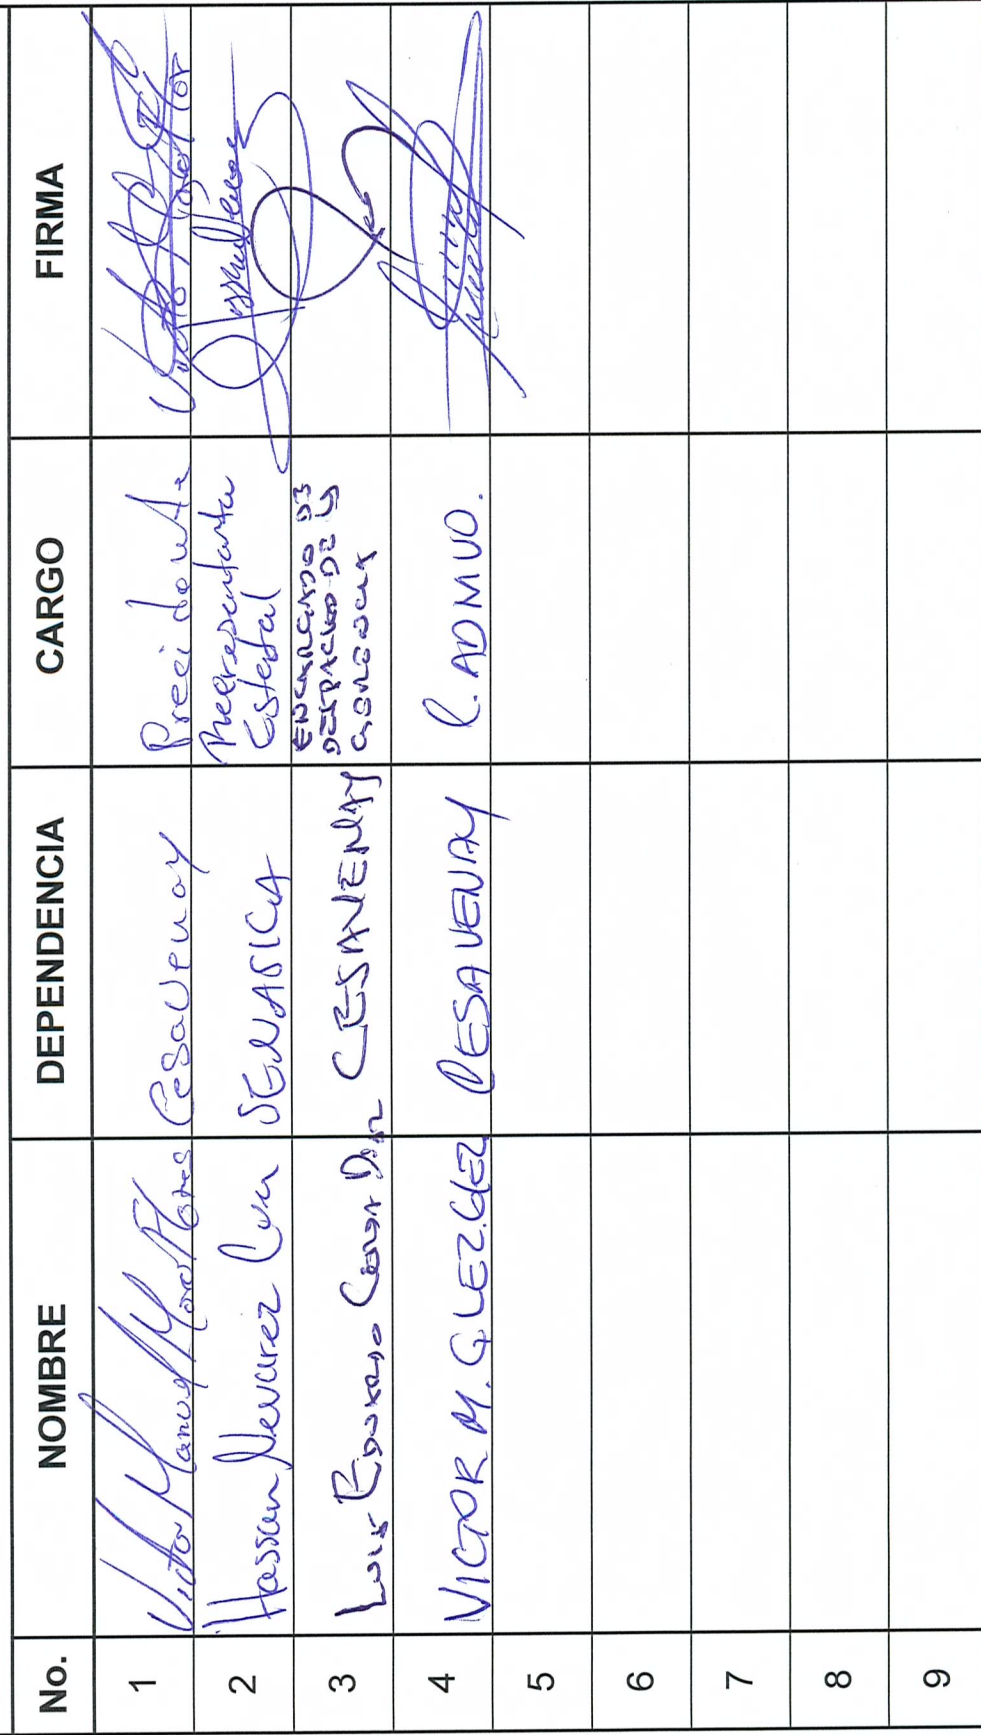 No. NOMBRE DEPENDENCIA CARGO FIRMA
1 Victor Manuel Mora Flores Cesavenay Precidente
2 Hassan Nevarez Cesavenay SENASICA Reepresentante
Estatal
3 Luis Eduardo CESAVENAY ENCARGADO DE
DESPACHO DE LA
GERENCIA
4 VICTOR M. GLEZ. GLEZ CESAVENAY C. ADMVO.
5
6
7
8
9